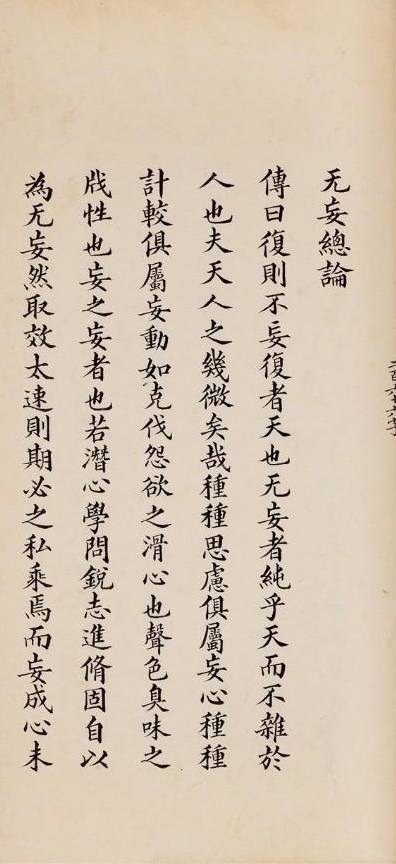 无妄總論
傳曰復則不妄復者天也无妄者純乎天而不雜於
人也夫天人之幾微矣哉種種思慮俱屬妄心種種
計較俱屬妄動如克伐怨欲之滑心也聲色臭味之
戕性也妄之妄者也若潛心學問銳志進脩固自以
為无妄然取效太速則期必之私乘焉而妄成心未